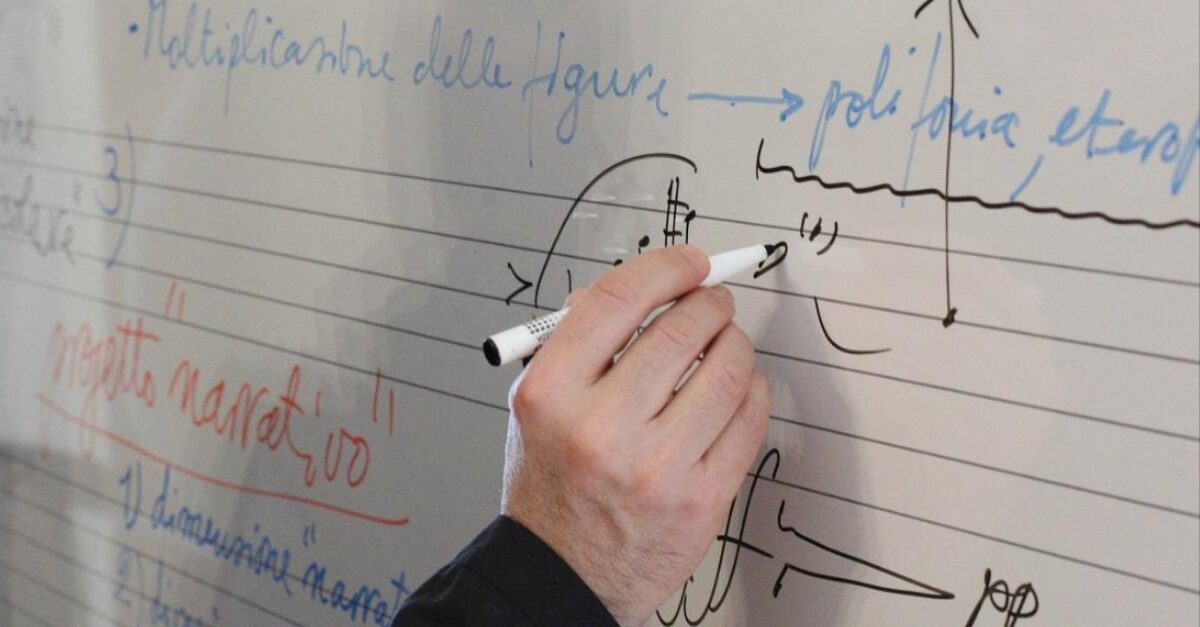 • Moltiplicazione delle figure → polifonia, eterof
3)
"progetto narrativo"
1) dimensione "narrat
2)
(#)
sff
pp